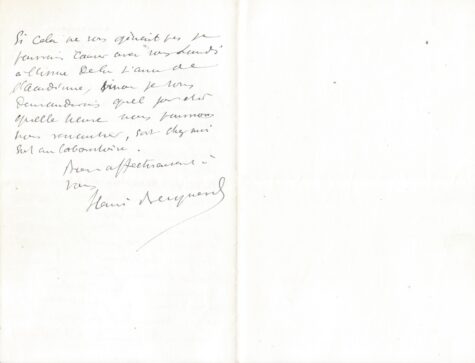 Si cela ne vous gênait pas je
pourrais causer avec vous Lundi
à l'issue de la séance de
l'académie, sinon je vous
demanderais quel jour et à
quelle heure nous pourrions
nous rencontrer, soit chez moi
soit au laboratoire.
Bien affectueusement à
vous
Henri Becquerel